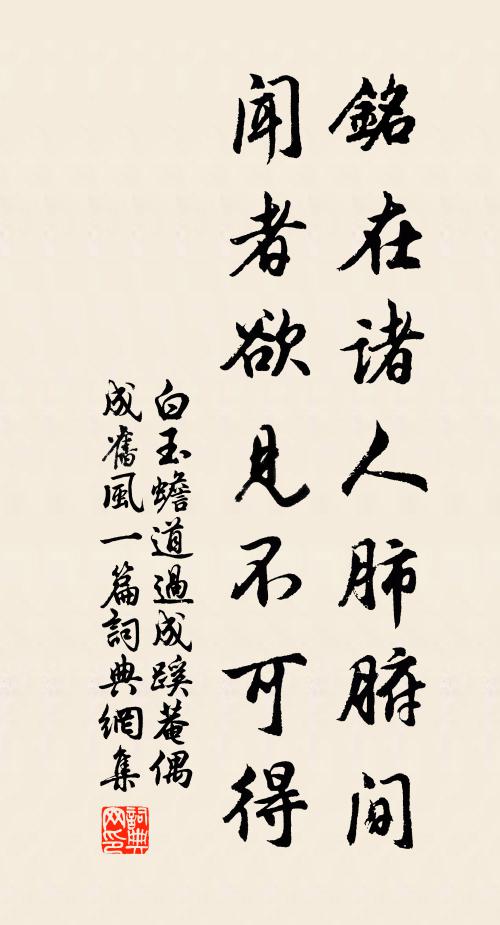 銘在諸人肺腑間
聞者欲見不可得
白玉蟾道過成蹊菴偶
成舊風一篇詞典網集
詞典網印